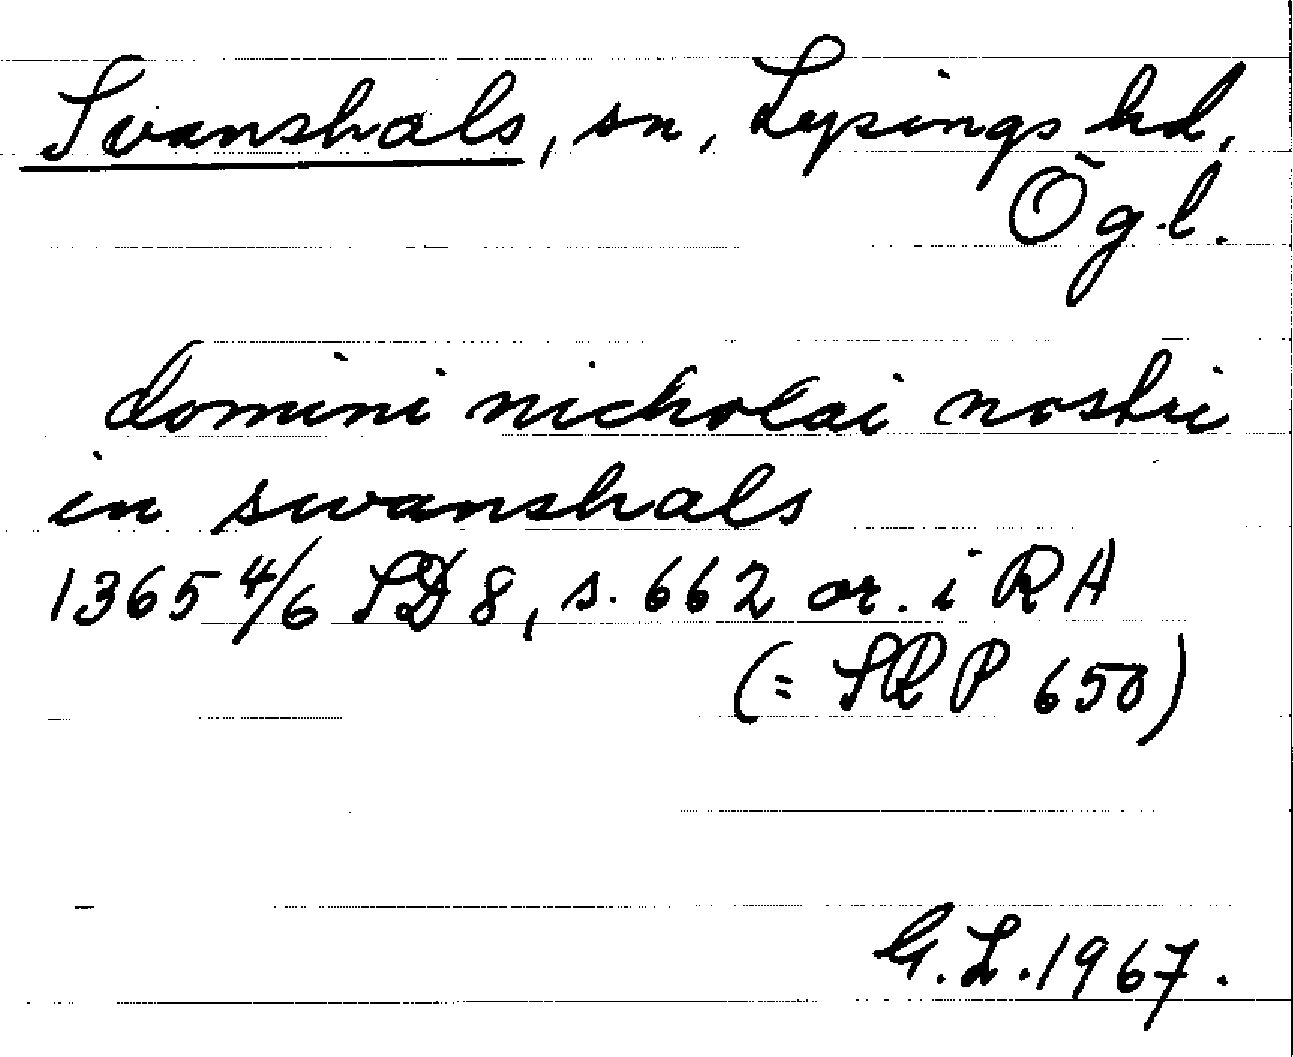 Svanshals, sn, Lysings hd,
Ögl.
domini nicholai nostri
in swanshals
1365 4/6 SD 8, s. 662 or. i RA
(= SRP 650)
G. L. 1967.